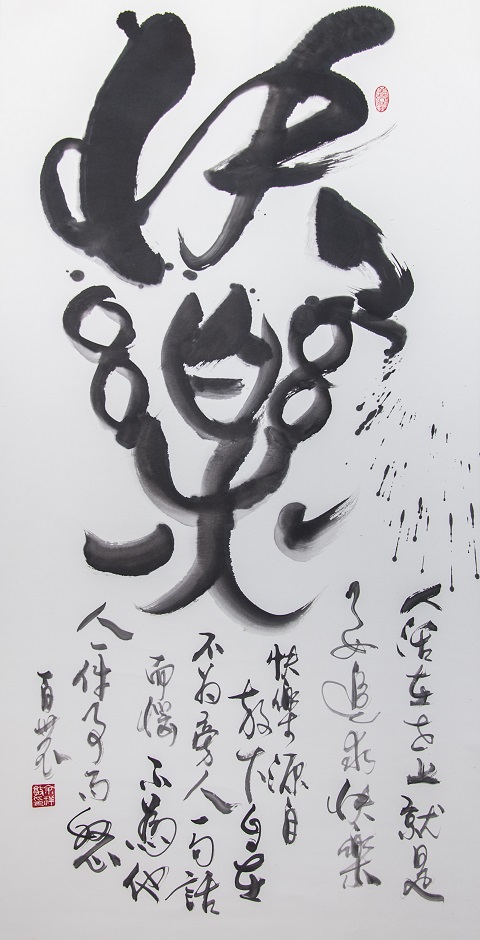 快樂
人活在世上就是
要追求快樂
快樂源自
放下自在
不為旁人一句話
而惱 不為他
人一件事而